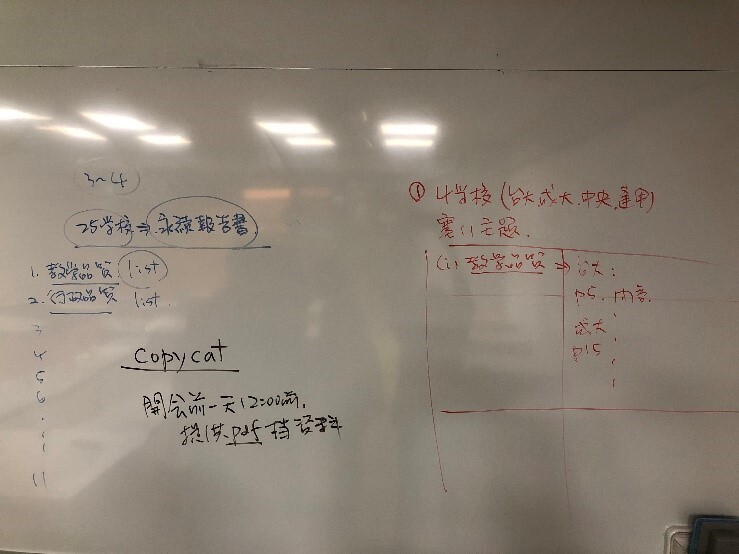 3~4
25学校⇒永續報告書
1. 教學品質 list
2. 行政品質 list.
3
4
5
6
11
copycat
開會前一天12:00前,
提供pdf檔資料
① 4学校 (台大,成大,中央,逢甲)
11主題.
(1) 教學品質 ⇒ 台大:
P5. 內容.
成大
P15